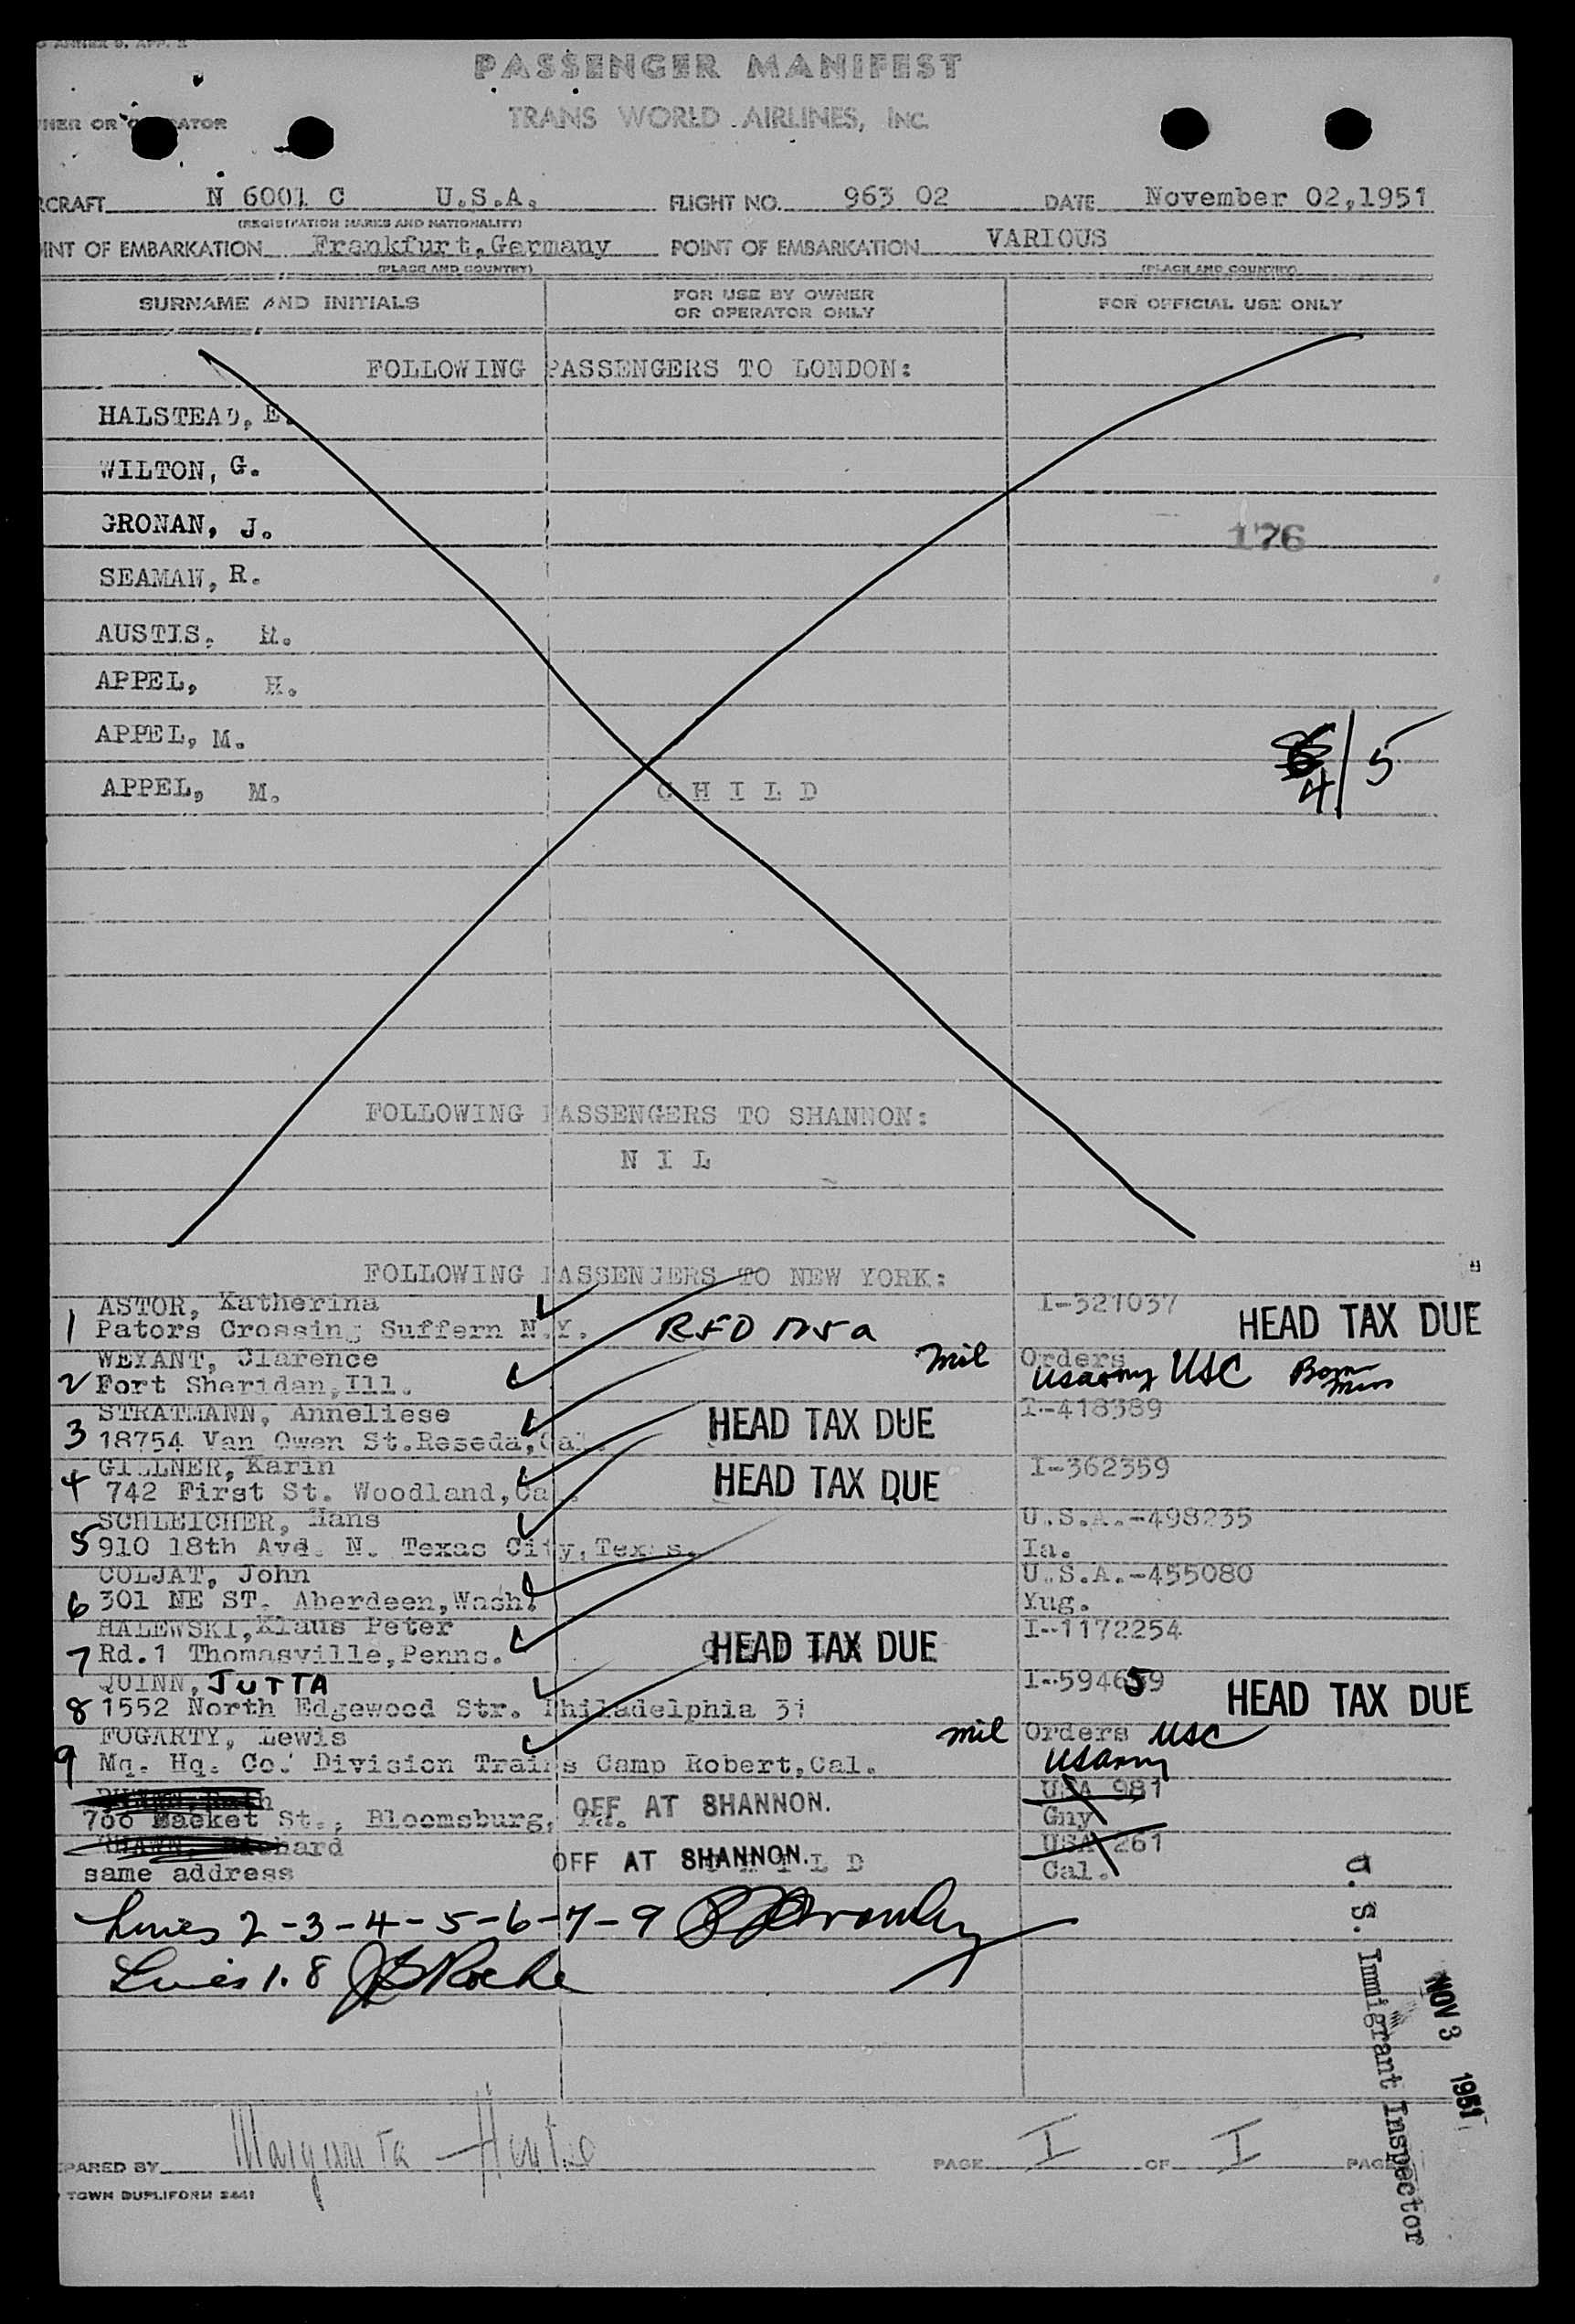 PASSENGER MANIFEST
TRANS WORLD AIRLINES, INC.
NER OR OPERATOR
RCRAFT N 6001 C U.S.A. FLIGHT NO. 963 02 DATE November 02,1951
(REGISTRATION MARKS AND NATIONALITY)
INT OF EMBARKATION Frankfurt,Germany POINT OF EMBARKATION VARIOUS
(PLACE AND COUNTRY) (PLACE AND COUNTRY)
SURNAME AND INITIALS FOR USE BY OWNER OR OPERATOR ONLY FOR OFFICIAL USE ONLY
FOLLOWING PASSENGERS TO LONDON:
HALSTEAD, E.
WILTON, G.
GRONAN, J.
176
SEAMAN, R.
AUSTIS.
APPEL, H.
APPEL, M.
4/5
APPEL, M. C H I L D
FOLLOWING PASSENGERS TO SHANNON:
N I L
FOLLOWING PASSENGERS TO NEW YORK:
ASTOR, Katherina I-321037 HEAD TAX DUE
1 Pators Crossing Suffern N.Y. RFD
WEYANT, Clarence mil Orders
2 Fort Sheridan,Ill. USarmy USC Born
STRATMANN, Anneliese HEAD TAX DUE I-418389
3 18754 Van Owen St.Reseda,Cal.
GILLNER, Karin HEAD TAX DUE I-362359
4 742 First St. Woodland,Cal.
SCHLEICHER, Hans U.S.A.-498235
5 910 18th Ave. N. Texas City,Texas. Ia.
COLJAT, John U.S.A.-455080
6 301 NE ST. Aberdeen,Wash. Yug.
HALEWSKI,Klaus Peter I-1172254
7 Rd.1 Thomasville,Penns. HEAD TAX DUE
QUINN, JUTTA I-594659 HEAD TAX DUE
8 1552 North Edgewood Str. Philadelphia 31
FOGARTY, Lewis mil Orders USC
9 Mq. Hq. Co. Division Trains Camp Robert,Cal. USarmy
USA 981
700 Market St., Bloomsburg, Pa. OFF AT SHANNON. Gny
USA 261
same address OFF AT SHANNON. Cal.
Lines 2-3-4-5-6-7-9
Lines 1.8 JB Roche
U. S. Immigrant Inspector
NOV 3 1951
PARED BY PAGE I OF I PAGES
TOWN DUPLIFORM 2441